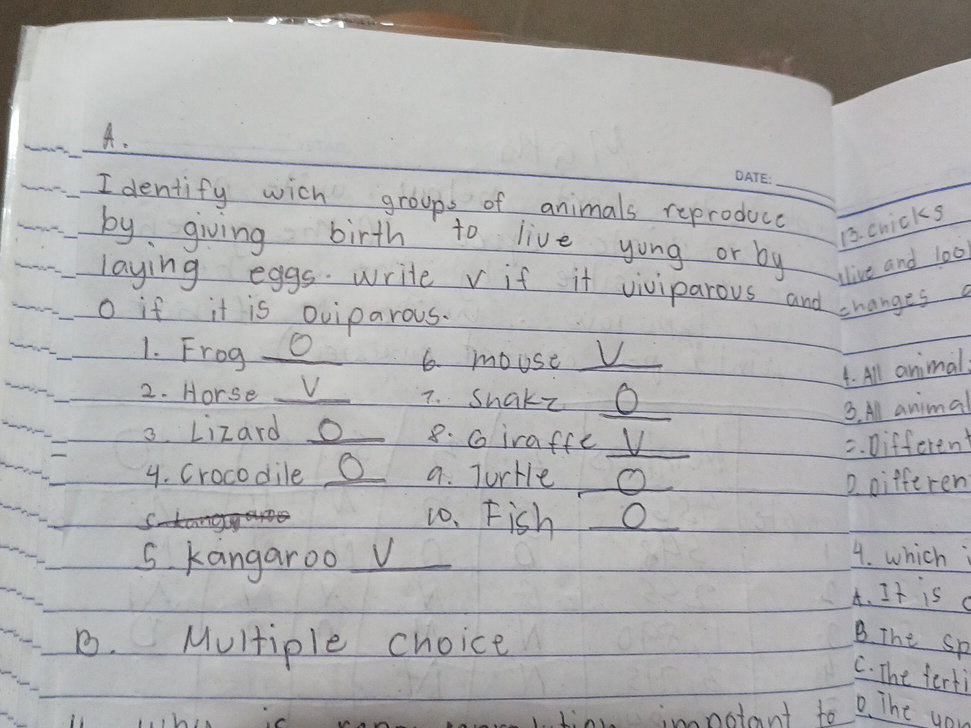 A.
DATE:
Identify wich groups of animals reproduce
by giving birth to live yung or by
laying eggs. write v if it viviparous and
O if it is oviparous.
1. Frog O
2. Horse V
3. Lizard O
4. Crocodile O
5. kangaroo V
6. mouse V
7. Snake O
8. Giraffe V
9. Turtle O
10. Fish O
B. Multiple choice
13. chicks
alive and
changes
A. All animal
B. All animal
C. Different
D. Different
4. which
A. It is
B. The
C. The
D. The